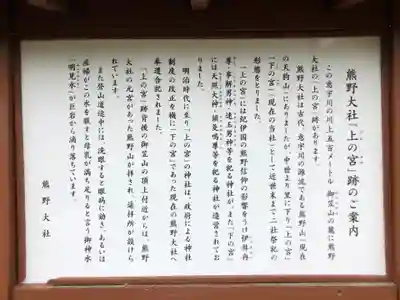 熊野大社「上の宮」跡のご案内
この意宇川の川上五百メートル 御笠山の麓に熊野
大社の「上の宮」跡が有ります。
熊野大社は古代、意宇川の源流である熊野山（現在
の天狗山）にありましたが、中世より里に下り「上の宮」
「下の宮」（現在の当社）として近世末まで二社祭祀の
形態をとりました。
「上の宮」には紀伊国の熊野信仰の影響をうけ伊弉冉
尊・事解男神・速玉男神等を祀る神社が、また「下の宮」
には天照大神・須及鳴尊等を祀る神社が造営されてお
りました。
明治時代に至り「上の宮」の神社は、政府による神社
制度の改正を機に「下の宮」であった現在の熊野大社へ
奉遷合祀されました。
「上の宮」跡背後の御笠山の頂上付近からは、熊野
大社の元宮があった熊野山が拝され、遥拝所が設けら
れています。
また登山道途中には、洗眼すると眼病に効き、あるいは
産婦がこの水を服すと母乳が満ち足りると言う御神水
「明見水」が巨岩から滴り落ちています。
熊野大社